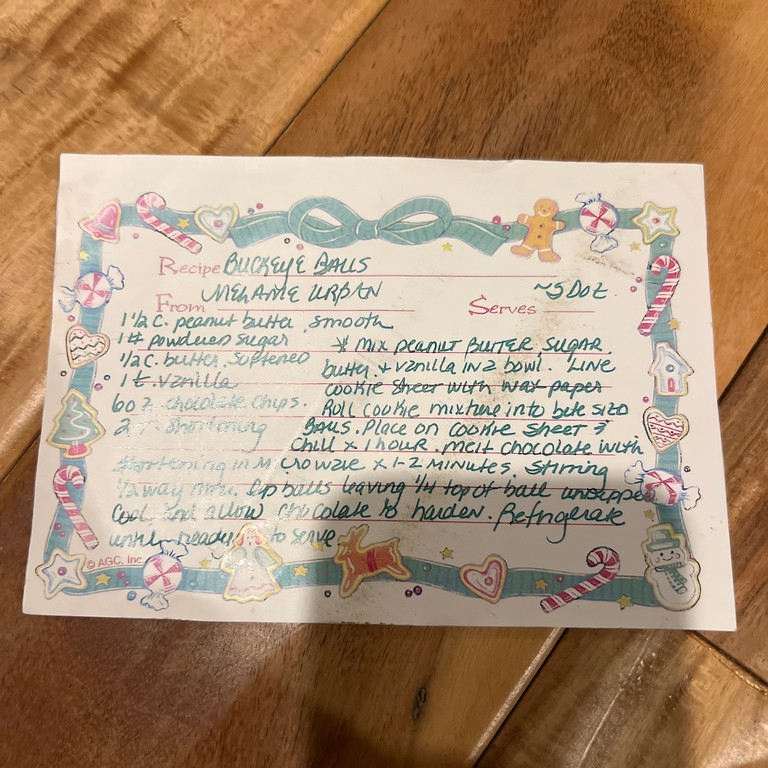 Recipe BUCKEYE BALLS
From MELANIE URBAN Serves ~5 DOZ
1 1/2 C. peanut butter, smooth
1# powdered sugar
1/2 C. butter, softened
1 t. vanilla
6 oz chocolate chips.
2 shortening
* MIX PEANUT BUTTER, SUGAR,
butter, + vanilla in a bowl. LINE
cookie sheet with wax paper
Roll cookie mixture into bite size
BALLS. Place on cookie sheet &
Chill x 1 hour. melt chocolate with
shortening in Microwave x 1-2 minutes, stirring
1/2 way thru. Dip balls leaving 1/4 top of ball undipped
Cool and allow chocolate to harden. Refrigerate
until ready to serve.
© AGC, Inc.